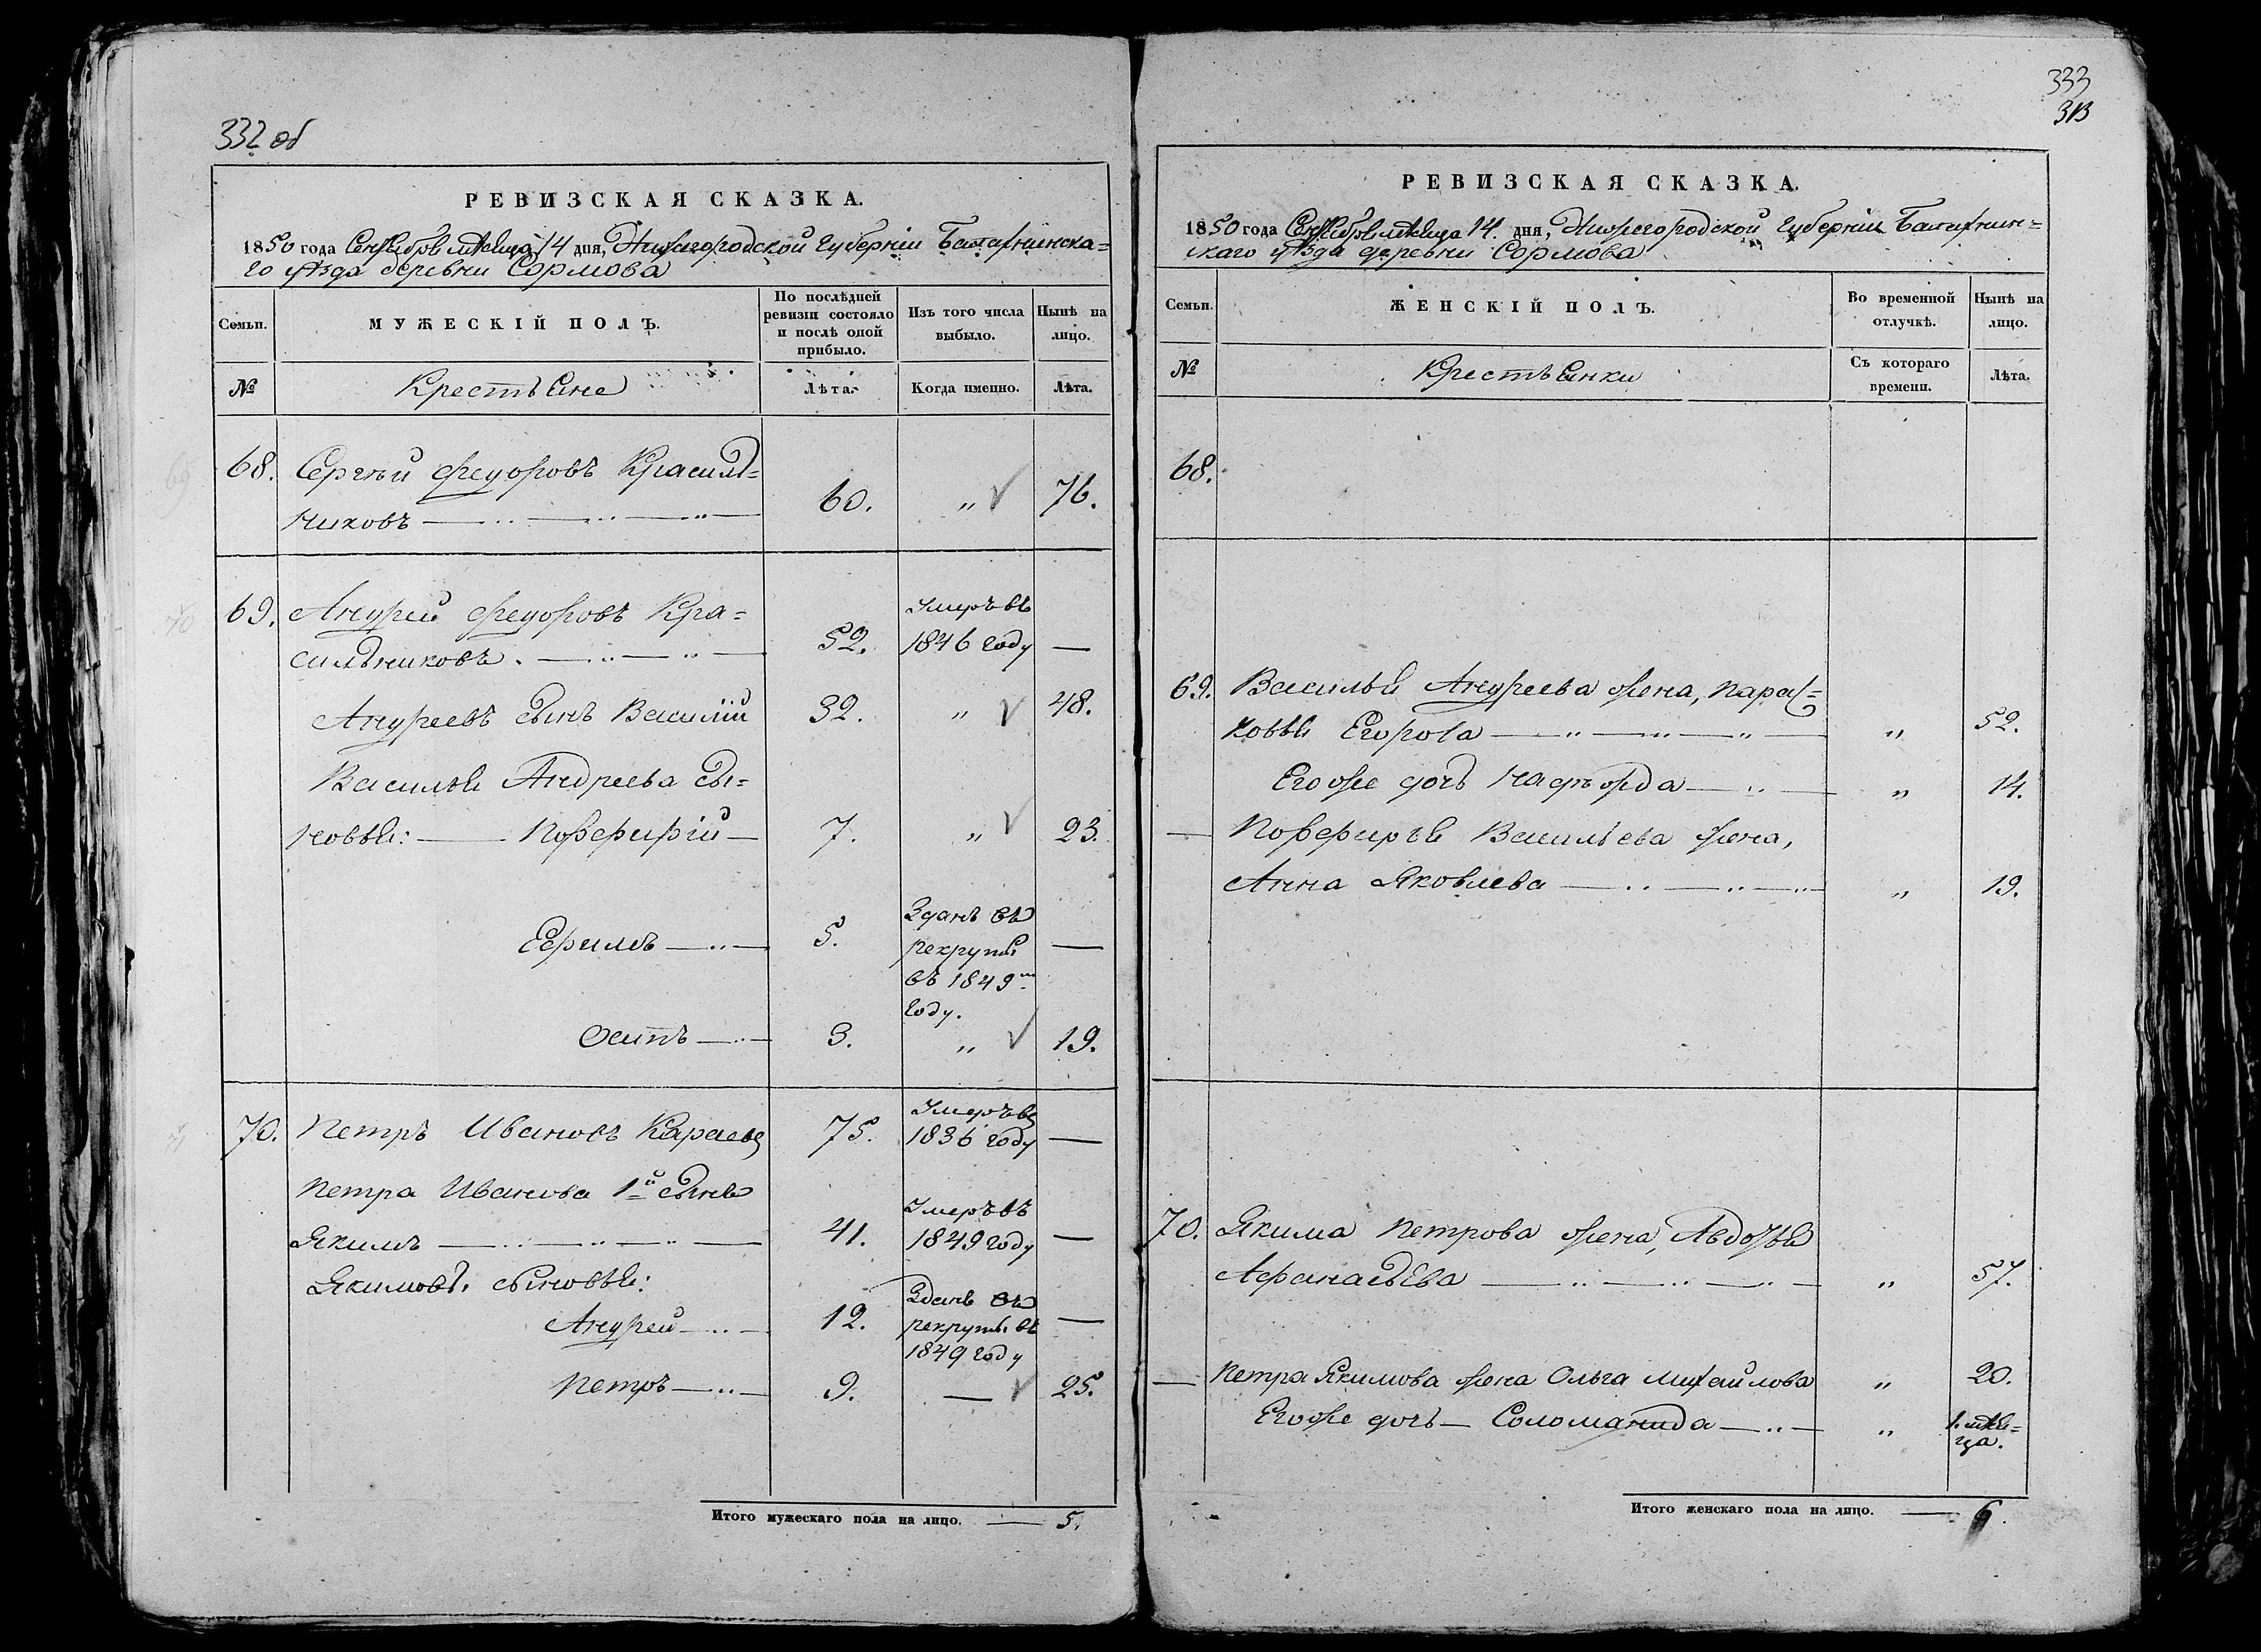 332 об
РЕВИЗСКАЯ СКАЗКА.
1850 года Сентября мѣсяца 14 дня, Нижегородской Губерніи Балахнинска=
го уѣзда деревни Сормова
Семьи. МУЖЕСКІЙ ПОЛЪ. По послѣдней ревизіи состояло и послѣ оной прибыло. Изъ того числа выбыло. Нынѣ на лицо.
№ Крестьяне Лѣта. Когда именно. Лѣта.
68. Сергѣй Федоровъ Красиль=
никовъ 60. „ 76.
69. Андрей Федоровъ Кра=
сильниковъ. 52. Умеръ въ 1846 году —
Андреевъ сынъ Василій 32. „ 48.
Василья Андреева сы=
новья: Порфирій 7. „ 23.
Ефимъ 5. Зданъ въ рекруты въ 1849м году. —
Осипъ 3. „ 19.
70. Петръ Ивановъ Караевъ 75. Умеръ въ 1836 году —
Петра Иванова 1й сынъ
Якимъ 41. Умеръ въ 1849 году —
Якимовы сыновья:
Андрей 12. Зданъ въ рекруты въ 1849 году —
Петръ 9. — 25.
Итого мужескаго пола на лицо. — 5.
333
313
РЕВИЗСКАЯ СКАЗКА.
1850 года Сентября мѣсяца 14. дня, Нижегородской Губерніи Балахнин=
скаго уѣзда деревни Сормова
Семьи. ЖЕНСКІЙ ПОЛЪ. Во временной отлучкѣ. Нынѣ на лицо.
№ Крестьянки Съ котораго времени. Лѣта.
68.
69. Василья Андреева жена, Парас=
ковья Егорова „ 52.
Его же дочь „ 14.
— Порфирья Васильева жена,
Анна Яковлева „ 19.
70. Якима Петрова жена, Авдотья
Афанасьева „ 57.
— Петра Якимова жена Ольга Михайлова „ 20.
Его же дочь — Соломанида „ 1. мѣся=
ца.
Итого женскаго пола на лицо. — 6.